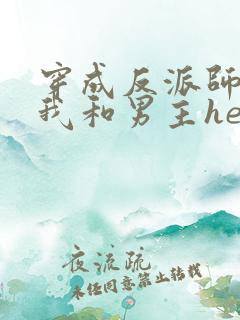 穿成反派師
我和男主he
夜流疏
未经同意禁止转载